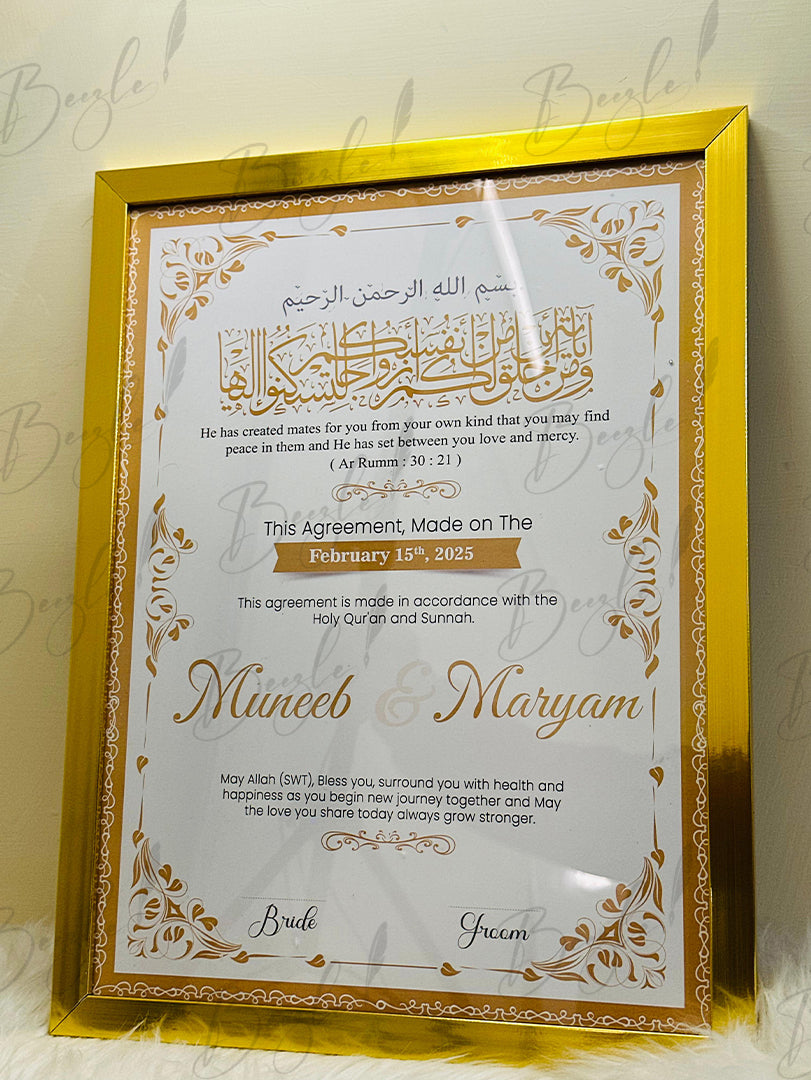 بسم الله الرحمن الرحيم
ومن آياته أن خلق لكم من أنفسكم أزواجا لتسكنوا إليها
He has created mates for you from your own kind that you may find
peace in them and He has set between you love and mercy.
( Ar Rumm : 30 : 21 )
This Agreement, Made on The
February 15th, 2025
This agreement is made in accordance with the
Holy Qur'an and Sunnah.
Muneeb & Maryam
May Allah (SWT), Bless you, surround you with health and
happiness as you begin new journey together and May
the love you share today always grow stronger.
Bride Groom
Beezle